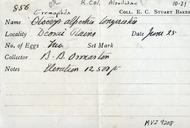 856 10-21
COLL. E. C. STUART BAKER
Eremophila
Otocorys alpestris longirostris
Locality Deosai Plains Date June 25
No. of Eggs Two Set Mark
Collector B. B. Osmaston
Notes Elevation 12,500 ft
MVZ 9208